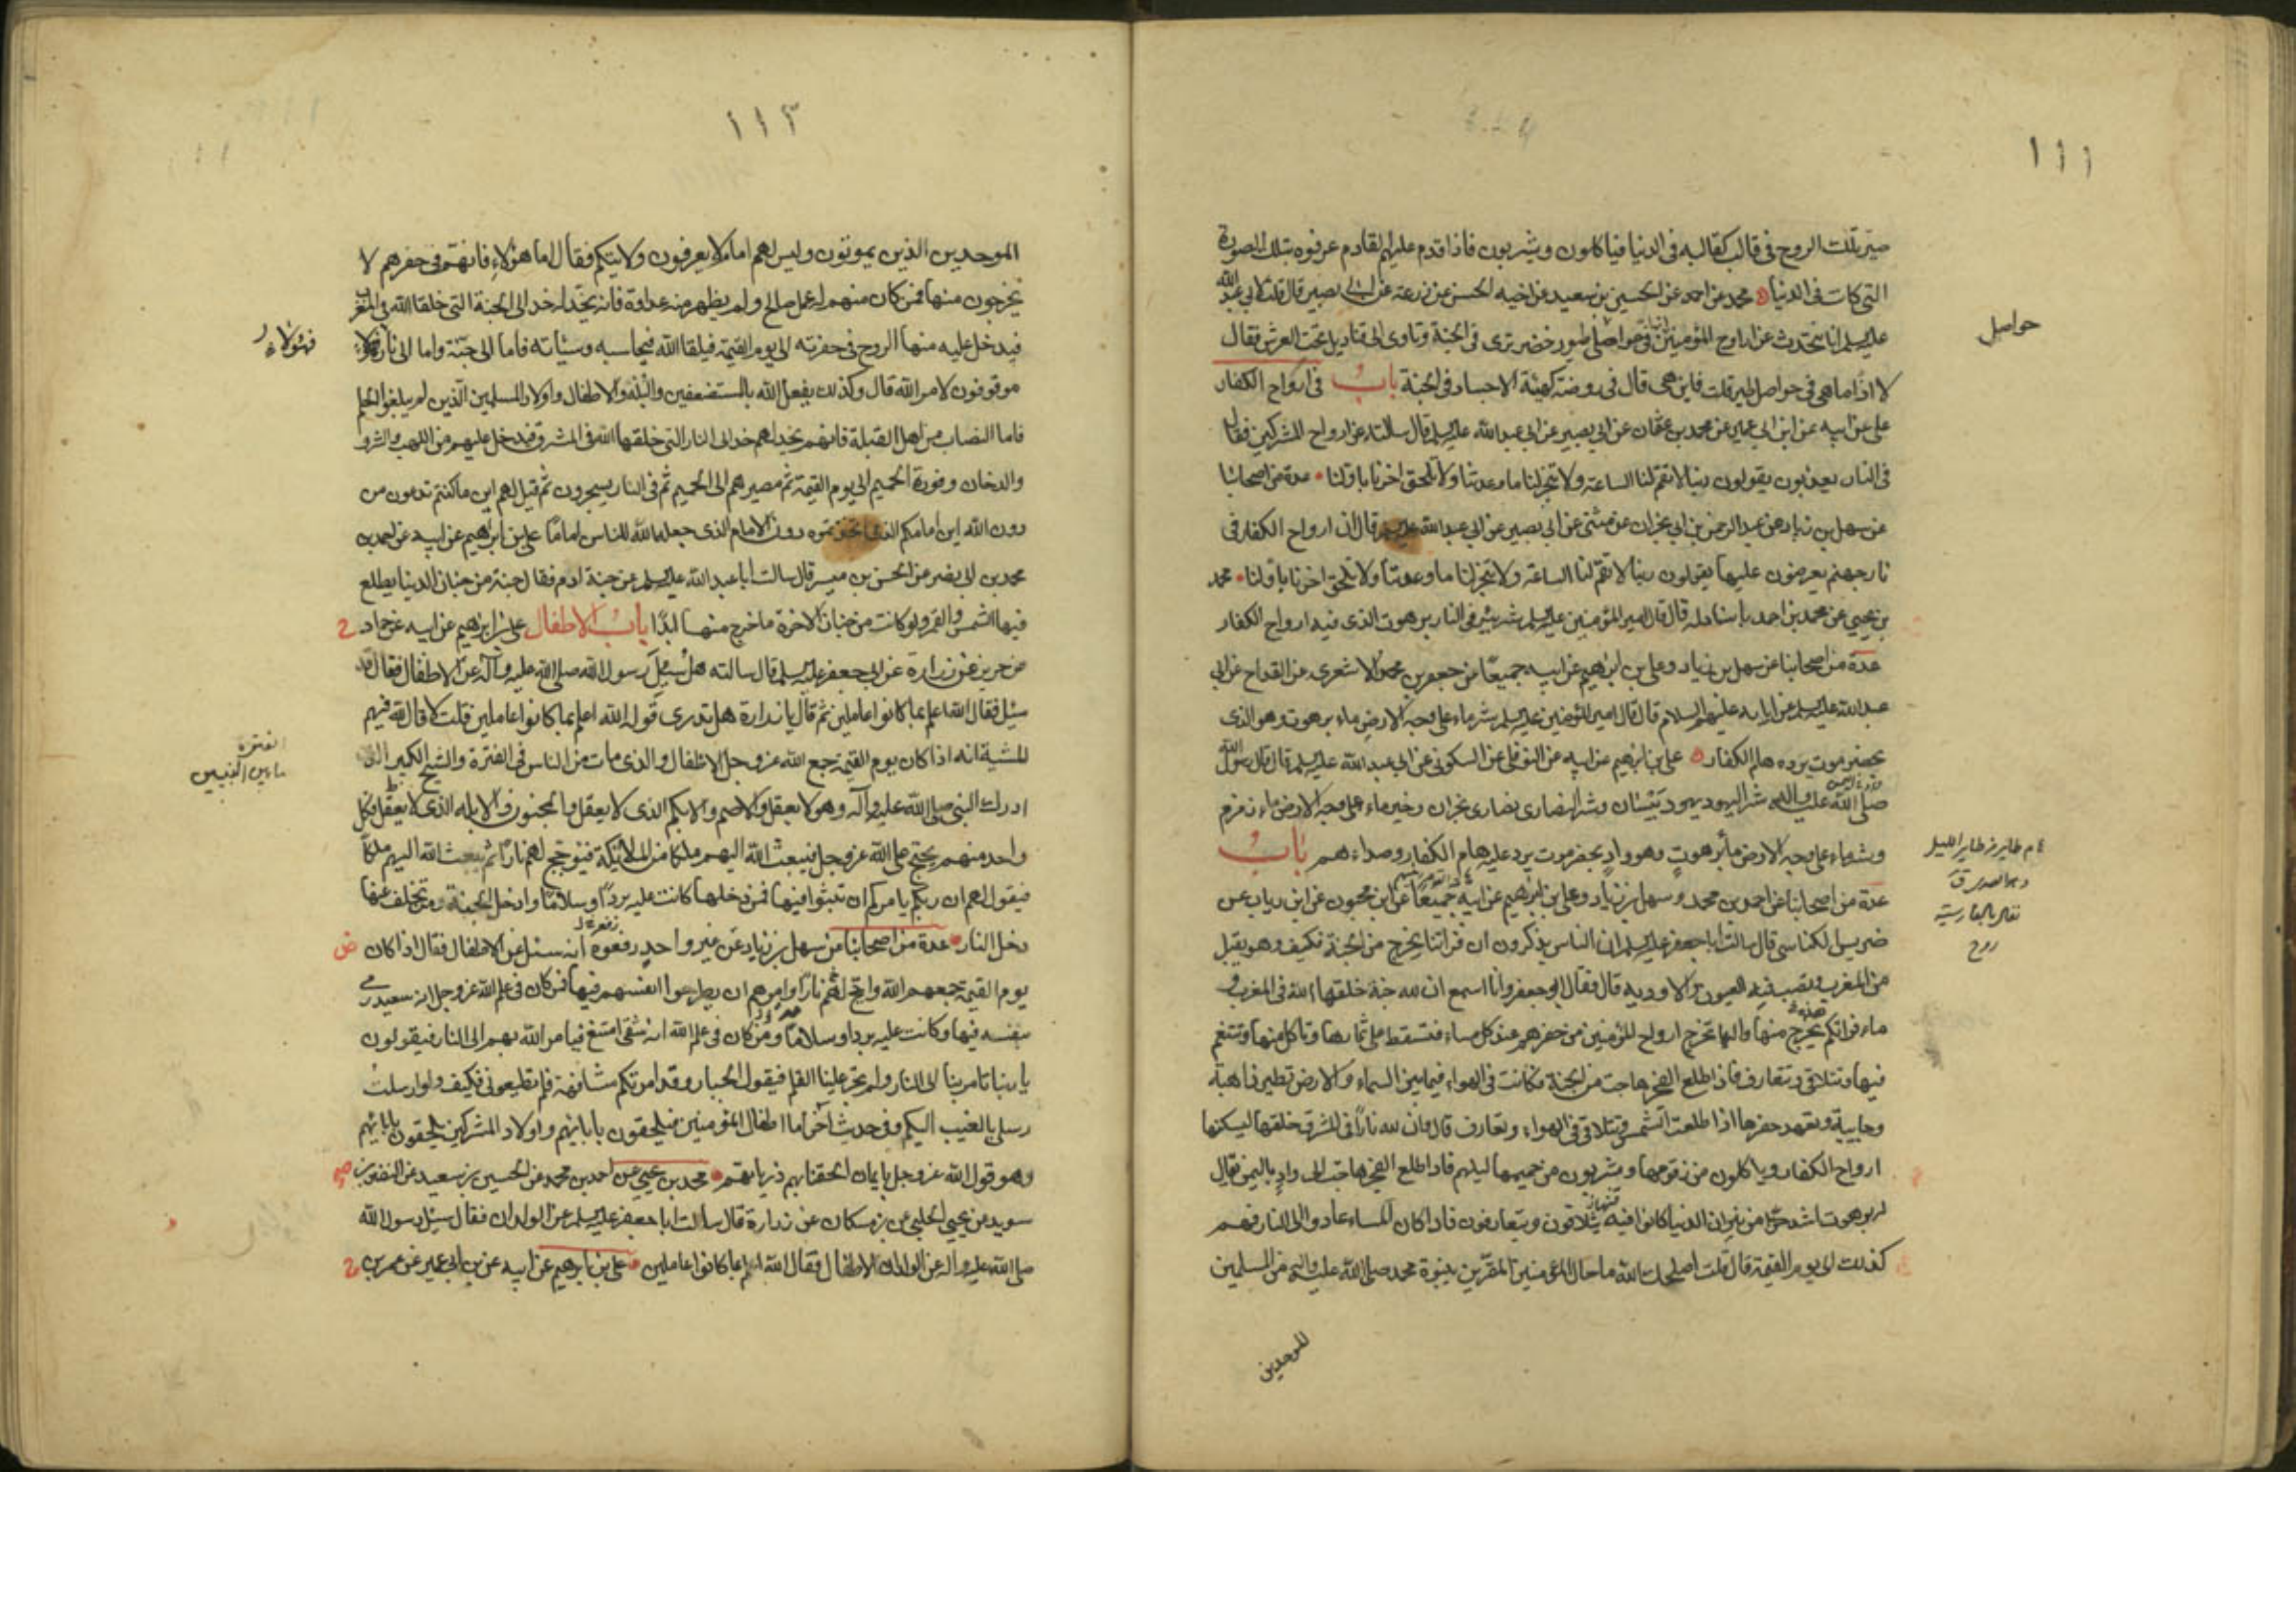 ١١١
صير تلك الروح فى قالب كقالبه فى الدنيا فياكلون ويشربون فاذا قدم عليهم القادم عرفوه بتلك الصورة
التى كانت فى الدنيا محمد عن احمد عن الحسين بن سعيد عن اخيه الحسن عن زرعة عن ابى بصير قال قلت لابى عبد الله
عليه السلم انا نتحدث عن ارواح المؤمنين انها فى حواصل طيور خضر ترى فى الجنة وتاوى الى قناديل تحت العرش فقال
حواصل
لا اذا ما هى فى حواصل طير قلت فاين هى قال فى روضة كهيئة الاجساد فى الجنة باب فى ارواح الكفار
على عن ابيه عن ابن ابى عمير عن محمد بن عثمان عن ابى بصير عن ابى عبد الله عليه السلم قال سالته عن ارواح المشركين فقال
فى النار يعذبون يقولون ربنا لا تقم لنا الساعة ولا تنجز لنا ما وعدتنا ولا تلحق اخرنا باولنا عدة من اصحابنا
عن سهل بن زياد عن عبد الرحمن بن ابى نجران عن مثنى عن ابى بصير عن ابى عبد الله عليه السلم قال ان ارواح الكفار فى
نار جهنم يعرضون عليها يقولون ربنا لا تقم لنا الساعة ولا تنجز لنا ما وعدتنا ولا تلحق اخرنا باولنا محمد
بن يحيى عن محمد بن احمد باسناد له قال قال امير المؤمنين عليه السلم شر بئر فى النار برهوت الذى فيه ارواح الكفار
عدة من اصحابنا عن سهل بن زياد وعلى بن ابرهيم عن ابيه جميعا عن جعفر بن محمد الاشعرى عن القداح عن ابى
عبد الله عليه السلم عن ابايه عليهم السلام قال قال امير المؤمنين عليه السلم شر ماء على وجه الارض ماء برهوت وهو الذى
بحضر موت يرده هام الكفار على بن ابرهيم عن ابيه عن النوفلى عن السكونى عن ابى عبد الله عليه السلم قال قال رسول الله
صلى الله عليه واله شر اليهود يهود بيسان وشر النصارى نصارى نجران وخير ماء على وجه الارض ماء زمزم
وشر ماء على وجه الارض ماء برهوت وهو واد بحضر موت يرد عليه هام الكفار وصداءهم باب
عدة من اصحابنا عن احمد بن محمد وسهل بن زياد وعلى بن ابرهيم عن ابيه جميعا عن ابن محبوب عن ابن رياب عن
ضريس الكناسى قال سالت ابا جعفر عليه السلم ان الناس يذكرون ان فراتنا يخرج من الجنة فكيف وهو يقبل
من المغرب وتصب فيه العيون والاوديه قال فقال ابو جعفر وانا اسمع ان لله جنة خلقها الله فى المغرب و
ماء فراتكم يخرج منها واليها تخرج ارواح المؤمنين من حفرهم عند كل مساء فتسقط على ثمارها وتاكل منها وتتنعم
فيها وتتلاقى وتتعارف فاذا طلع الفجر هاجت من الجنة فكانت فى الهواء فيما بين السماء والارض تطير ذاهبة
وجايية وتعهد حفرها اذا طلعت الشمس وتتلاقى فى الهواء وتعارف قال وان لله نارا فى المشرق خلقها ليسكنها
ارواح الكفار وياكلون من زقومها ويشربون من حميمها ليلهم فاذا طلع الفجر هاجت الى واد باليمن يقال
له برهوت اشد حرا من نيران الدنيا كانوا فيه يتلاقون ويتعارفون فاذا كان المساء عادوا الى النار فهم
كذلك الى يوم القيمة قال قلت اصلحك الله ما حال المؤمنين المقرين بنبوة محمد صلى الله عليه واله من المسلمين
للموحدين
١١٢
الموحدين الذين يموتون وليس لهم امام ولا يعرفون ولايتكم فقال اما هؤلاء فانهم فى حفرهم لا
يخرجون منها فمن كان منهم له عمل صالح ولم يظهر منه عداوة فانه يخد له خد الى الجنة التى خلقها الله فى المغرب
فيدخل عليه منها الروح فى حفرته الى يوم القيمة فيلقا الله فيحاسبه وسيئاته فاما الى جنة واما الى نار فهؤلاء
فهؤلاء
موقوفون لامر الله قال وكذلك يفعل الله بالمستضعفين والبله والاطفال واولاد المسلمين الذين لم يبلغوا الحلم
فاما النصاب من اهل القبلة فانهم يخد لهم خد الى النار التى خلقها الله فى المشرق فيدخل عليهم من اللهب والشرر
والدخان وفورة الحميم الى يوم القيمة ثم مصيرهم الى الحميم ثم فى النار يسجرون ثم قيل لهم اين ما كنتم تدعون من
دون الله اين امامكم الذى اتخذتموه دون الامام الذى جعله الله للناس اماما على بن ابرهيم عن ابيه عن احمد بن
محمد بن ابى نصر عن الحسن بن ميسر قال سالت ابا عبد الله عليه السلم عن جنة ادم فقال جنة من جنان الدنيا يطلع
فيها الشمس والقمر ولو كانت من جنان الاخرة ما خرج منها ابدا باب الاطفال على بن ابرهيم عن ابيه عن حماد
عن حريز عن زرارة عن ابى جعفر عليه السلم قال سالته هل سئل رسول الله صلى الله عليه وآله عن الاطفال فقال قد
سئل فقال الله اعلم بما كانوا عاملين ثم قال يا زرارة هل تدرى قوله الله اعلم بما كانوا عاملين قلت لا قال لله فيهم
المشية انه اذا كان يوم القيمة جمع الله عز وجل الاطفال والذى مات من الناس فى الفترة والشيخ الكبير الذى
الفترة
ما بين النبيين
ادرك النبى صلى الله عليه وآله وهو لا يعقل والاصم والابكم الذى لا يعقل والمجنون والابله الذى لا يعقل فكل
واحد منهم يحتج على الله عز وجل فيبعث الله اليهم ملكا من الملائكة فيؤجج لهم نارا ثم يبعث الله اليهم ملكا
فيقول لهم ان ربكم يامركم ان تثبوا فيها فمن دخلها كانت عليه بردا وسلاما وادخل الجنة ومن تخلف عنها
دخل النار عدة من اصحابنا عن سهل بن زياد عن غير واحد رفعوه انه سئل عن الاطفال فقال اذا كان
يوم القيمة جمعهم الله واجج لهم نارا وامرهم ان يطرحوا انفسهم فيها فمن كان فى علم الله عز وجل انه سعيد رمى
بنفسه فيها وكانت عليه بردا وسلاما ومن كان فى علم الله انه شقى امتنع فيامر الله بهم الى النار فيقولون
يا ربنا تامر بنا الى النار ولم يجر علينا القلم فيقول الجبار وقد امرتكم مشافهة فلم تطيعونى فكيف ولو ارسلت
رسلى بالغيب اليكم وفى حديث آخر اما اطفال المؤمنين فيلحقون بابائهم واولاد المشركين يلحقون بابائهم
وهو قول الله عز وجل بايمان الحقنا بهم ذرياتهم محمد بن يحيى عن احمد بن محمد عن الحسين بن سعيد عن النضر بن
سويد عن يحيى الحلبى عن بن مسكان عن زرارة قال سالت ابا جعفر عليه السلم عن الولدان فقال سئل رسول الله
صلى الله عليه واله عن الولدان الاطفال فقال الله اعلم بما كانوا عاملين على بن ابرهيم عن ابيه عن بن ابى عمير عن عمر بن